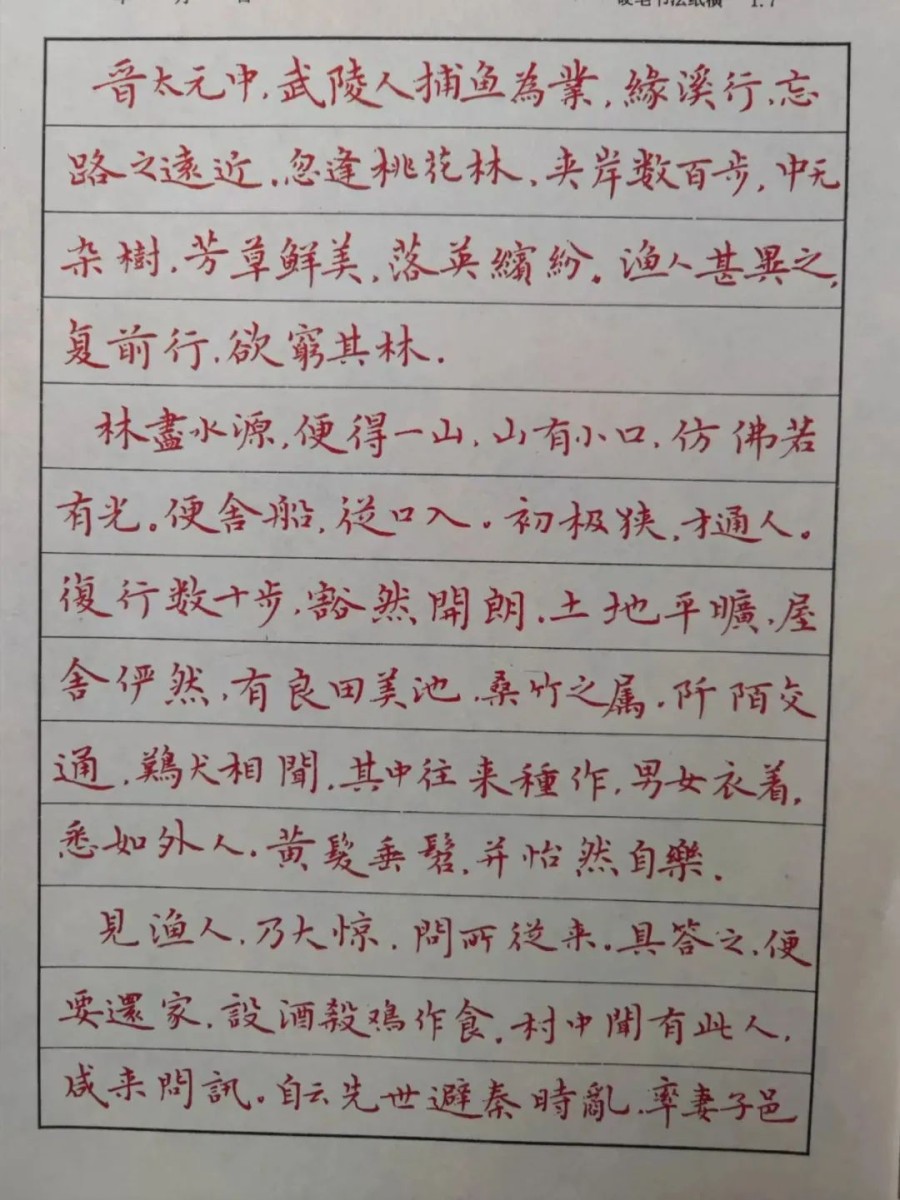 晋太元中,武陵人捕鱼為業,緣溪行,忘
路之遠近.忽逢桃花林、夹岸数百步,中无
杂樹,芳草鮮美,落英繽紛。渔人甚異之,
复前行,欲窮其林.
林盡水源,便得一山,山有小口,仿佛若
有光。便舍船,從口入。初极狭,才通人。
復行数十步,豁然開朗.土地平曠,屋
舍俨然,有良田美池、桑竹之属.阡陌交
通,鷄犬相聞,其中往来種作,男女衣着,
悉如外人.黄髮垂髫,并怡然自樂.
見渔人,乃大惊,問所從来。具答之,便
要還家,設酒殺鸡作食。村中聞有此人,
咸来問訊。自云先世避秦時亂,率妻子邑